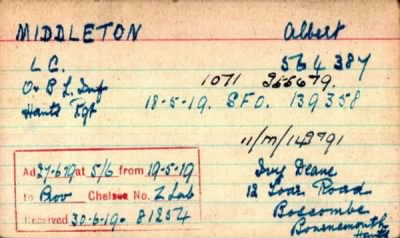 MIDDLETON Albert
L.C. 564387
O & B L. Inf 1071 255679.
Hants Rgt 18-5-19. SFO. 139358
11/M/142791
Ad 27-6-19 at 5/6 from 19-5-19
to Prov Chelsea No. Z Lab
Received 30-6-19. 81254
Ivy Deane
12 Road
Boscombe
Bournemouth
Hants